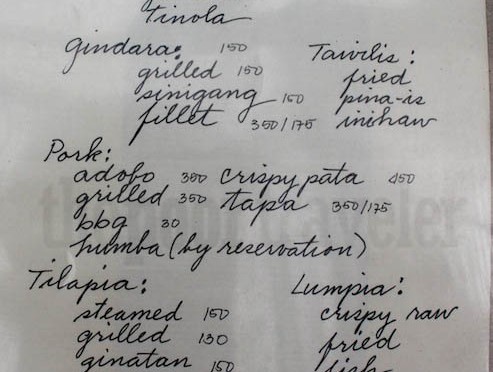 Tinola
Gindara: 150
grilled 150
sinigang 160
fillet 350/175
Tawilis:
fried
pina-is
inihaw
Pork:
adobo 350 crispy pata 450
grilled 350 tapa 350/175
bbq 30
humba (by reservation)
Tilapia:
steamed 150
grilled 130
ginatan 150
Lumpia:
crispy raw
fried
fish